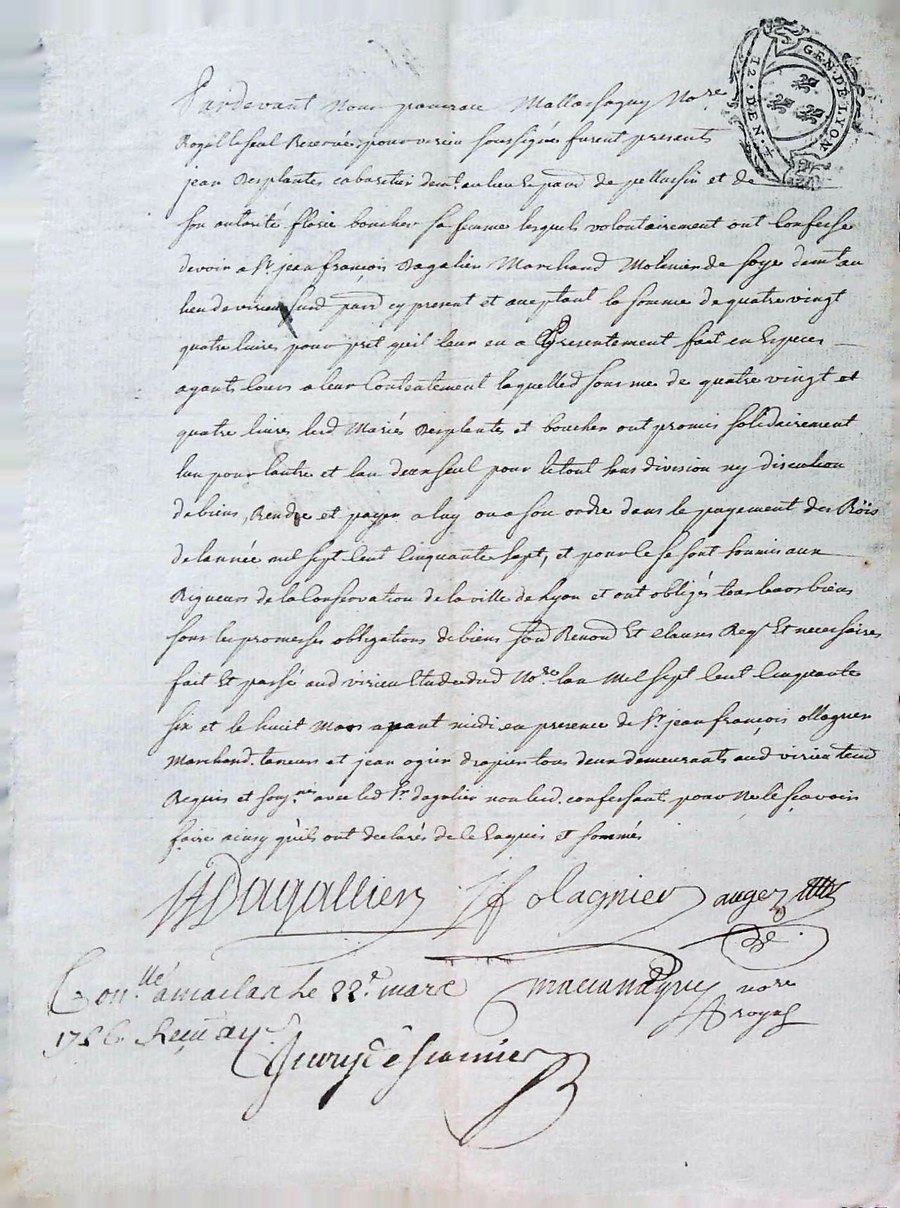 GEN. DE LYON
12. DEN
Pardevant Nous Nore
Royal le seul Reservé pour virieu soussigné furent presents
jean Desplantes cabaretier demt au lieu et parr de pellussin et de
son autorité florie boucher sa femme lesquels volontairement ont Confessé
devoir a Sr jean françois Dagalier Marchand Molinier de soye demt au
lieu de virieu sud parr cy present et aceptant la somme de quatre vingt
quatre livres pour pret qu'il leur en a presentement fait en Especes
ayants cours a leur Contentement laquelle somme de quatre vingt et
quatre livres led Mariés Desplantes et boucher ont promis solidairement
lun pour lautre et lun deux seul pour le tout sans division ny discution
de biens, Rendre et payer a luy ou a son ordre dans le payement des Roïs
de lannée mil sept Cent Cinquante sept, et pour ce se sont soumis aux
Rigueurs de la Conservation de la ville de Lyon et ont obligés tous leurs biens
sous les promesses obligations de biens Renond Et clauses Reqs Et necessaires
fait Et passé aud virieu Etude dud Nore lan Mil sept Cent Cinquante
six et le huit Mars avant midi en presence de Sr jean françois ollagnier
Marchand taneur et jean ogier drapier tous deux demeurants aud virieu
Requis et avec led Sr dagalier non led. confessants pour ne le sçavoir
faire ainsy qu'ils ont declarés de ce Enquis et sommés
Dagallier jf olagnier auger
Conllé a maclas le 22e mars nore
1756. Reçu royal